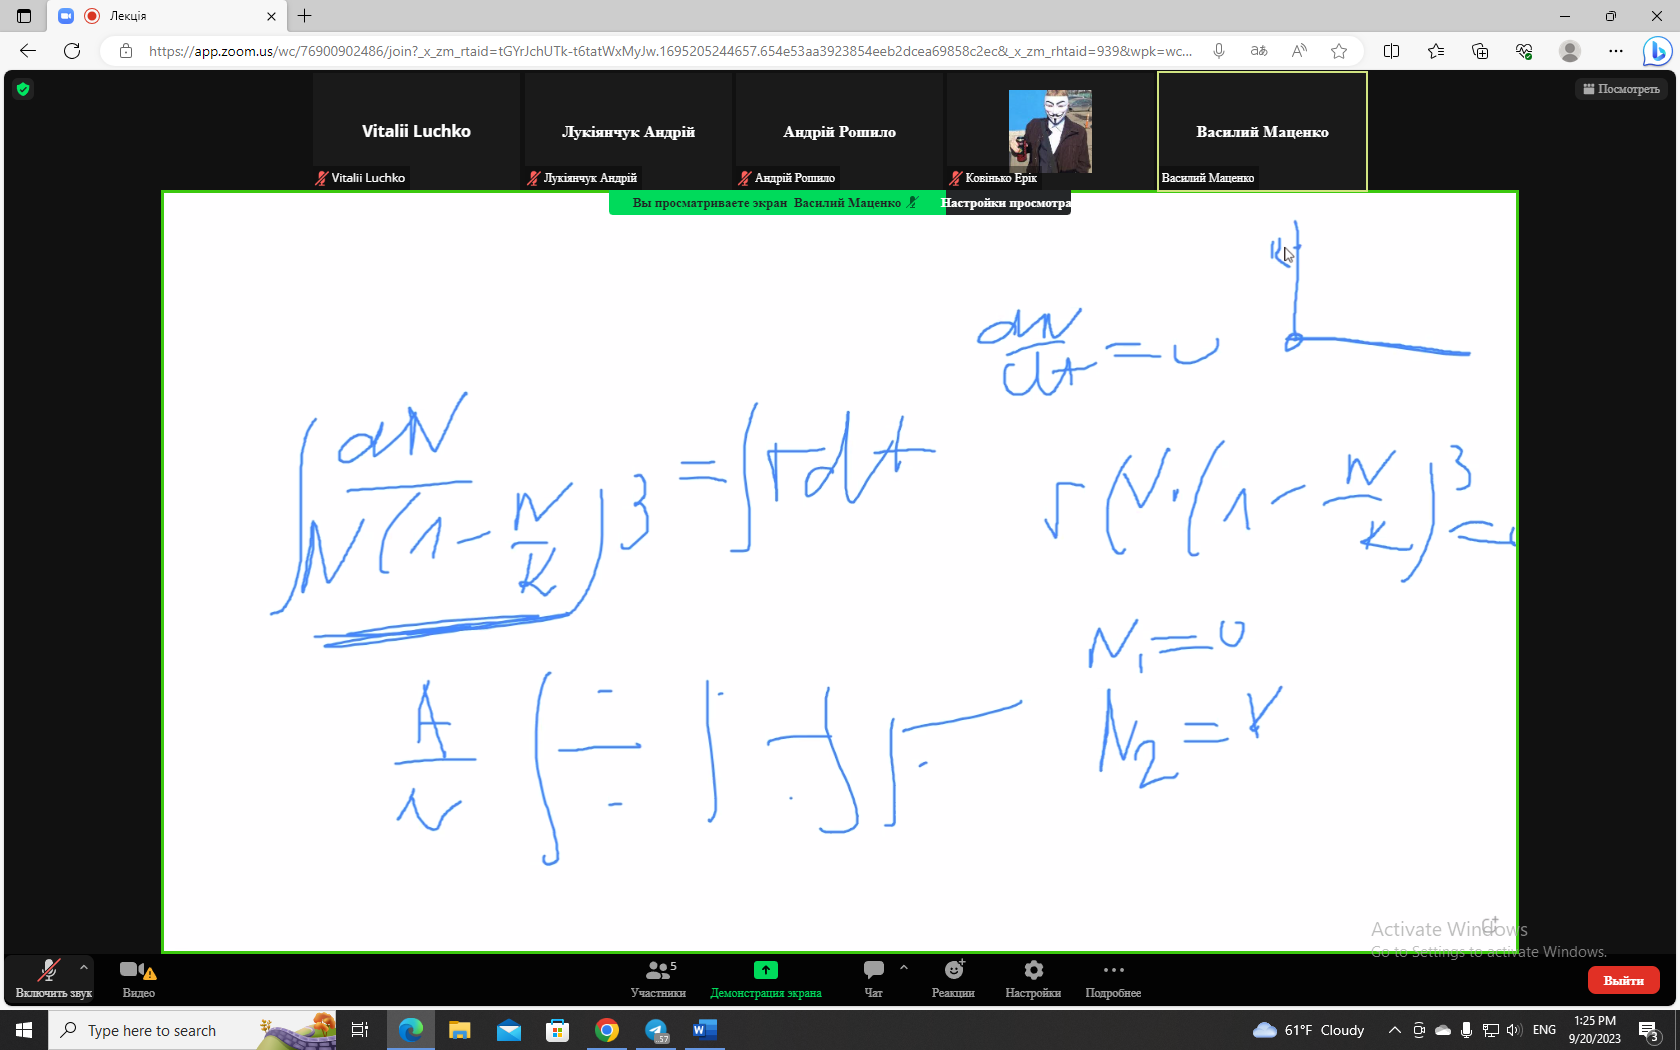 Лекція
https://app.zoom.us/wc/76900902486/join?_x_zm_rtaid=tGYrJchUTk-t6tatWxMyJw.1695205244657.654e53aa3923854eeb2dcea69858c2ec&_x_zm_rhtaid=939&wpk=wc...
Посмотреть
Vitalii Luchko
Лукіянчук Андрій
Андрій Рошило
Василий Маценко
Vitalii Luchko
Лукіянчук Андрій
Андрій Рошило
Ковінько Ерік
Василий Маценко
Вы просматриваете экран Василий Маценко
Настройки просмотра
K
dN/dt = 0
∫ dN / N(1 - N/K)3 = ∫ r dt
r (N · (1 - N/K)3 =
N1 = 0
N2 = K
A/N
Activate Windows
Go to Settings to activate Windows.
Включить звук
Видео
Участники
5
Демонстрация экрана
Чат
Реакции
Настройки
Подробнее
Выйти
Type here to search
57
61°F Cloudy
ENG
1:25 PM
9/20/2023
3